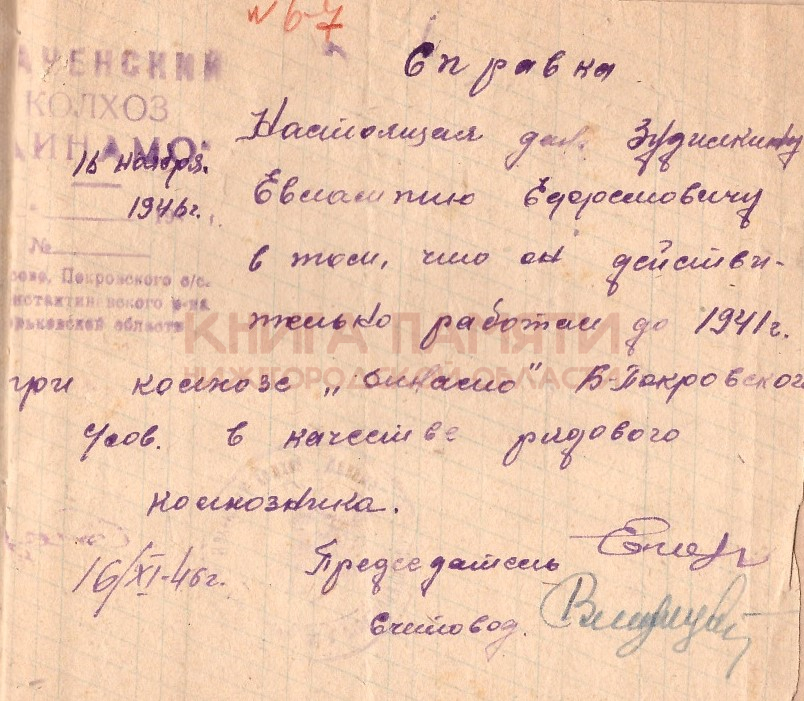 № 6-7
Справка
АЧЕНСКИЙ
КОЛХОЗ
ДИНАМО"
16 ноября.
1946г.
№
Покровского с/с.
нстантиновского р-на
рьковской области
Настоящая дан. Зудилкину
Евлампию Едоремовичу
в том, что он действи-
тельно работал до 1941г.
при колхозе „Динамо" В-Покровского
Усов. в качестве рядового
колхозника.
16/XI-46г. Председатель
Счетовод.
КНИГА ПАМЯТИ
НИЖЕГОРОДСКОЙ ОБЛАСТИ